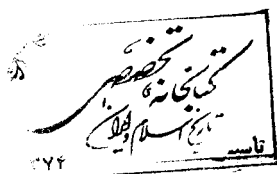 کتابخانه تخصصی
تاریخ اسلام و ایران
تاسیس
۳۷۴